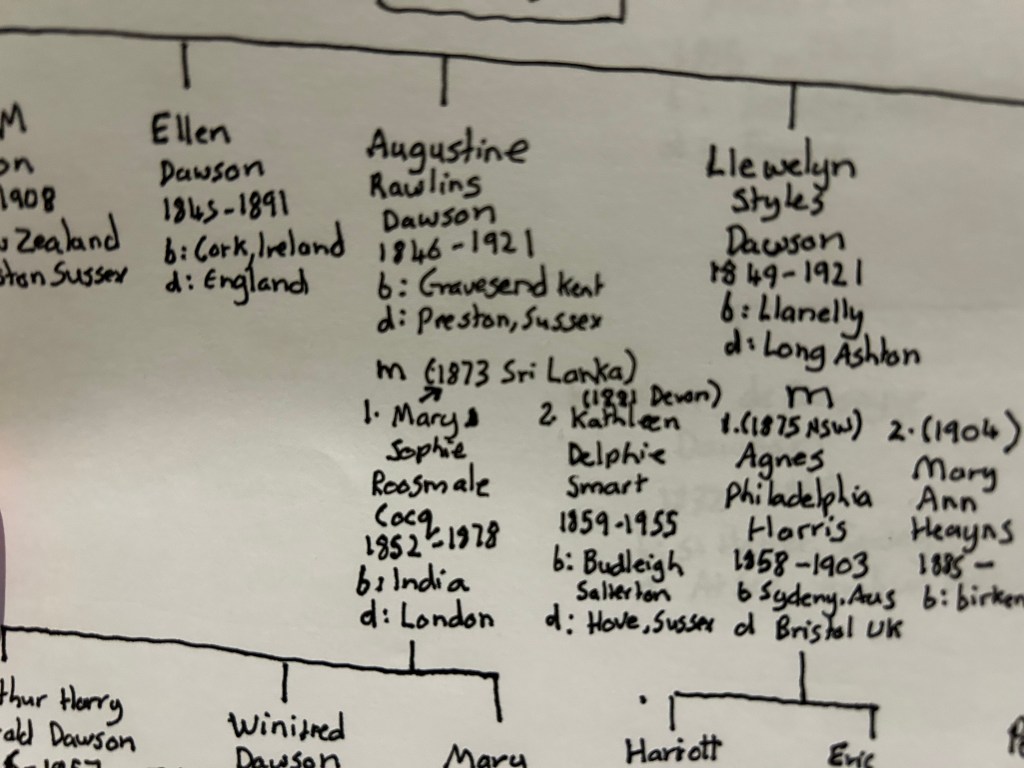 M
on
1908
Zealand
ton Sussex
Ellen
Dawson
1845-1891
b: Cork, Ireland
d: England
Augustine
Rawlins
Dawson
1846-1921
b: Gravesend Kent
d: Preston, Sussex
m (1873 Sri Lanka)
1. Mary
Sophie
Roosmale
Cocq
1852-1878
b: India
d: London
(1881 Devon)
2 Kathleen
Delphie
Smart
1859-1955
b: Budleigh
Salterton
d: Hove, Sussex
Llewelyn
Styles
Dawson
1849-1921
b: Llanelly
d: Long Ashton
m
1. (1875 NSW)
Agnes
Philadelphia
Harris
1858-1903
b Sydeny, Aus
d Bristol UK
2. (1904)
Mary
Ann
Heayns
1885-
b: birken
thur Harry
ald Dawson
1957
Winifred
Dawson
Mary
Hariott
Eric